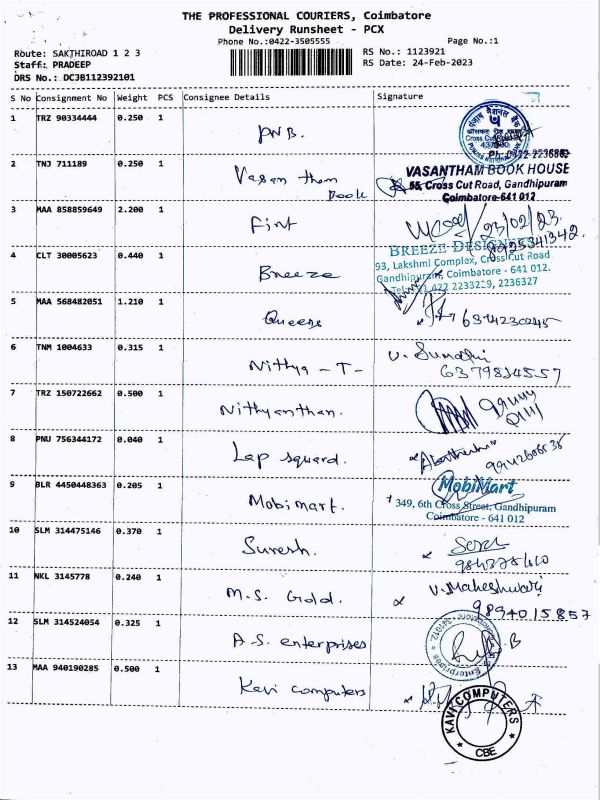 THE PROFESSIONAL COURIERS, Coimbatore
Delivery Runsheet - PCX
Phone No.:0422-3505555
Page No.:1
Route: SAKTHIROAD 1 2 3
RS No.: 1123921
Staff: PRADEEP
RS Date: 24-Feb-2023
DRS No.: DCJB112392101
S No Consignment No Weight PCS Consignee Details Signature
1 TRZ 90334444 0.250 1 PNB.
2 TNJ 711189 0.250 1 Vasantham Book
VASANTHAM BOOK HOUSE
55, Cross Cut Road, Gandhipuram
Coimbatore-641 012
3 MAA 858859649 2.200 1 First 23/02/23.
8925341342.
4 CLT 30005623 0.440 1 Breeze
BREEZE DESIGNERS
93, Lakshmi Complex, Cross Cut Road
Gandhipuram, Coimbatore - 641 012.
2236327
5 MAA 568482051 1.210 1 Queens
6 TNM 1004633 0.315 1 Nithya - T - V. Sumathi
7 TRZ 150722662 0.500 1 Nithyanthan.
8 PNU 756344172 0.040 1 Lap squard.
9 BLR 4450448363 0.205 1 Mobimart.
MobiMart
349, 6th Cross Street, Gandhipuram
Coimbatore - 641 012
10 SLM 314475146 0.370 1 Suresh.
11 NKL 3145778 0.240 1 M.S. Gold. V. Maheshwari
9894015857
12 SLM 314524054 0.325 1 A.S. enterprises
13 MAA 940190285 0.500 1 Kavi computers
KAVI COMPUTERS
CBE